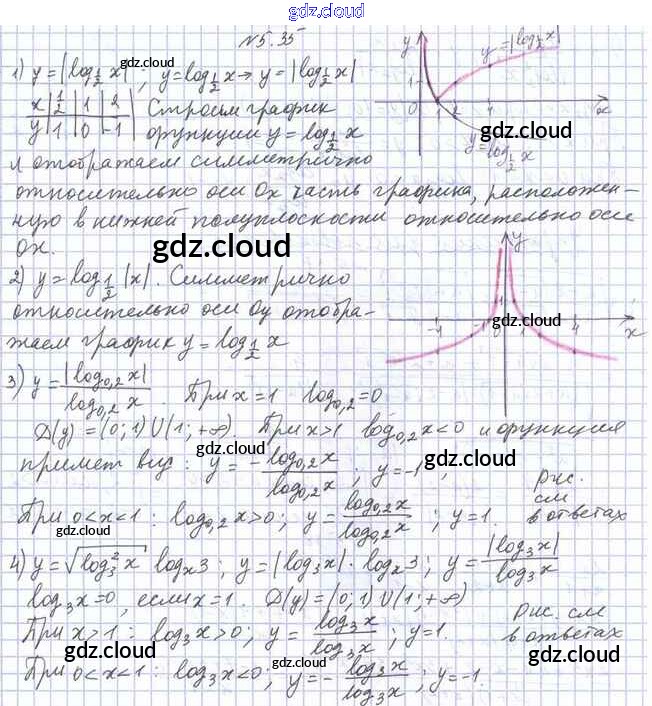 gdz.cloud
№5.35
1) y = |log_{1/2} x| ; y = log_{1/2} x → y = |log_{1/2} x|
x | 1/2 | 1 | 2
y | 1 | 0 | -1
Строим график
функции y = log_{1/2} x
и отображаем симметрично
относительно оси Ox часть графика, расположен-
ную в нижней полуплоскости относительно оси
Ox.
y
y = |log_{1/2} x|
1
0
2
x
gdz.cloud
y = log_{1/2} x
gdz.cloud
gdz.cloud
2) y = log_{1/2} |x|. Симметрично
относительно оси Oy отобра-
жаем график y = log_{1/2} x
y
gdz.cloud
-4
-1
0
1
4
x
3) y = |log_{0,2} x| / log_{0,2} x . При x = 1 log_{0,2} = 0
D(y) = (0; 1) U (1; +∞). При x > 1 log_{0,2} x < 0 и функция
gdz.cloud
примет вид: y = - log_{0,2} x / log_{0,2} x ; y = -1 ;
gdz.cloud
Рис.
см
в ответах
При 0 < x < 1 : log_{0,2} x > 0 ; y = log_{0,2} x / log_{0,2} x ; y = 1.
gdz.cloud
4) y = √(log_3^2 x) log_x 3 ; y = |log_3 x| · log_x 3 ; y = |log_3 x| / log_3 x
log_3 x = 0, если x = 1. D(y) = (0; 1) U (1; +∞)
При x > 1 : log_3 x > 0 ; y = log_3 x / log_3 x ; y = 1.
Рис. см
в ответах
gdz.cloud
gdz.cloud
При 0 < x < 1 : log_3 x < 0 ; y = - log_3 x / log_3 x ; y = -1.
gdz.cloud